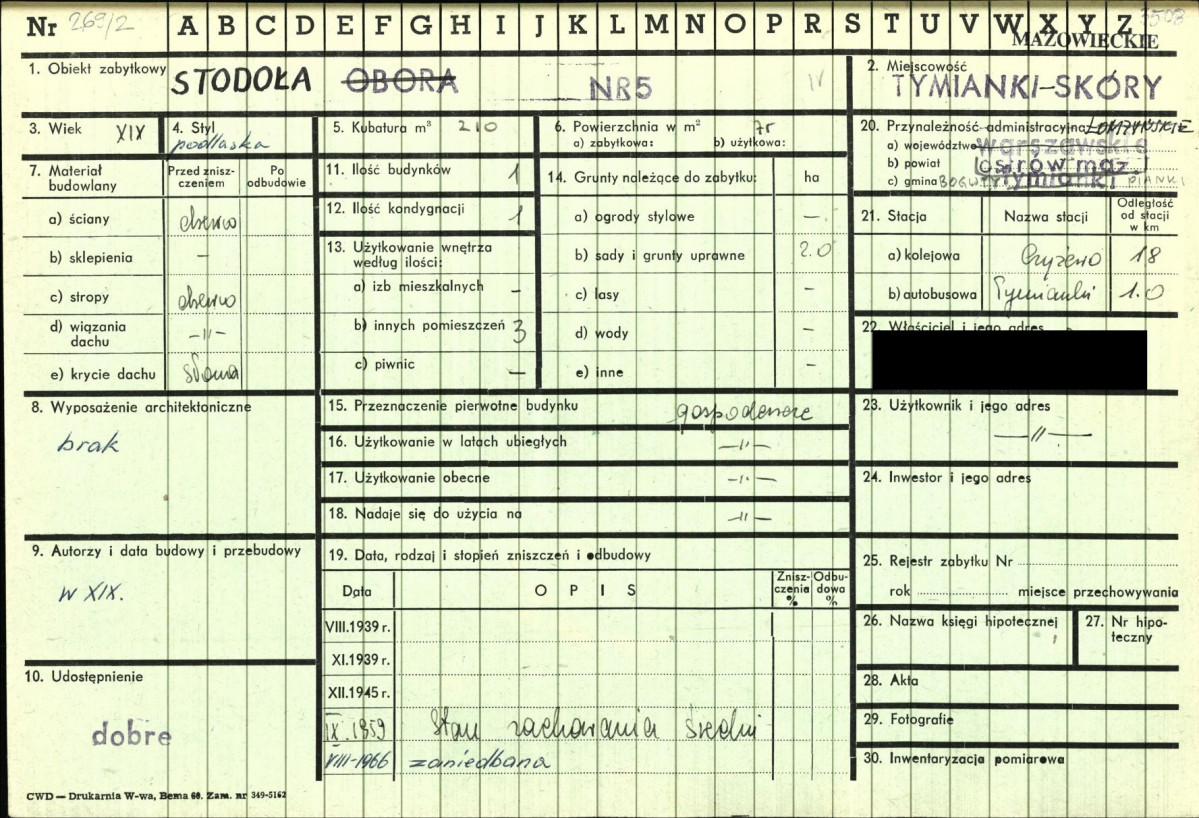 Nr 269/2 A B C D E F G H I J K L M N O P R S T U V W X Y Z 3508
MAZOWIECKIE
1. Obiekt zabytkowy STODOŁA OBORA NR 5 IV
2. Miejscowość
TYMIANKI-SKÓRY
3. Wiek XIX
4. Styl
podlaska
5. Kubatura m³ 210
6. Powierzchnia w m² 75
a) zabytkowa: b) użytkowa:
20. Przynależność administracyjna ŁOMŻYŃSKIE
a) województwo warszawskie
b) powiat ostrów maz.
c) gmina tymianki
7. Materiał budowlany
Przed znisz-
czeniem
Po
odbudowie
a) ściany drewno
b) sklepienia —
c) stropy drewno
d) wiązania
dachu —"—
e) krycie dachu słoma
11. Ilość budynków 1
12. Ilość kondygnacji 1
13. Użytkowanie wnętrza
według ilości:
a) izb mieszkalnych —
b) innych pomieszczeń 3
c) piwnic —
14. Grunty należące do zabytku: ha
a) ogrody stylowe —
b) sady i grunty uprawne 2.0
c) lasy —
d) wody —
e) inne —
21. Stacja Nazwa stacji Odległość
od stacji
w km
a) kolejowa Czyżewo 18
b) autobusowa Tymianki 1.0
22. Właściciel i jego adres
8. Wyposażenie architektoniczne
brak
15. Przeznaczenie pierwotne budynku gospodarcze
16. Użytkowanie w latach ubiegłych —"—
17. Użytkowanie obecne —"—
18. Nadaje się do użycia na —"—
23. Użytkownik i jego adres
—"—
24. Inwestor i jego adres
9. Autorzy i data budowy i przebudowy
w XIX.
19. Data, rodzaj i stopień zniszczeń i odbudowy
Data OPIS Znisz-
czenia
%
Odbu-
dowa
%
VIII.1939 r.
XI.1939 r.
XII.1945 r.
IX.1959 Stan zachowania średni
VIII-1966 zaniedbana
25. Rejestr zabytku Nr
rok miejsce przechowywania
26. Nazwa księgi hipotecznej
27. Nr hipo-
teczny
10. Udostępnienie
dobre
28. Akta
29. Fotografie
30. Inwentaryzacja pomiarowa
CWD — Drukarnia W-wa, Bema 60. Zam. nr 349-5162